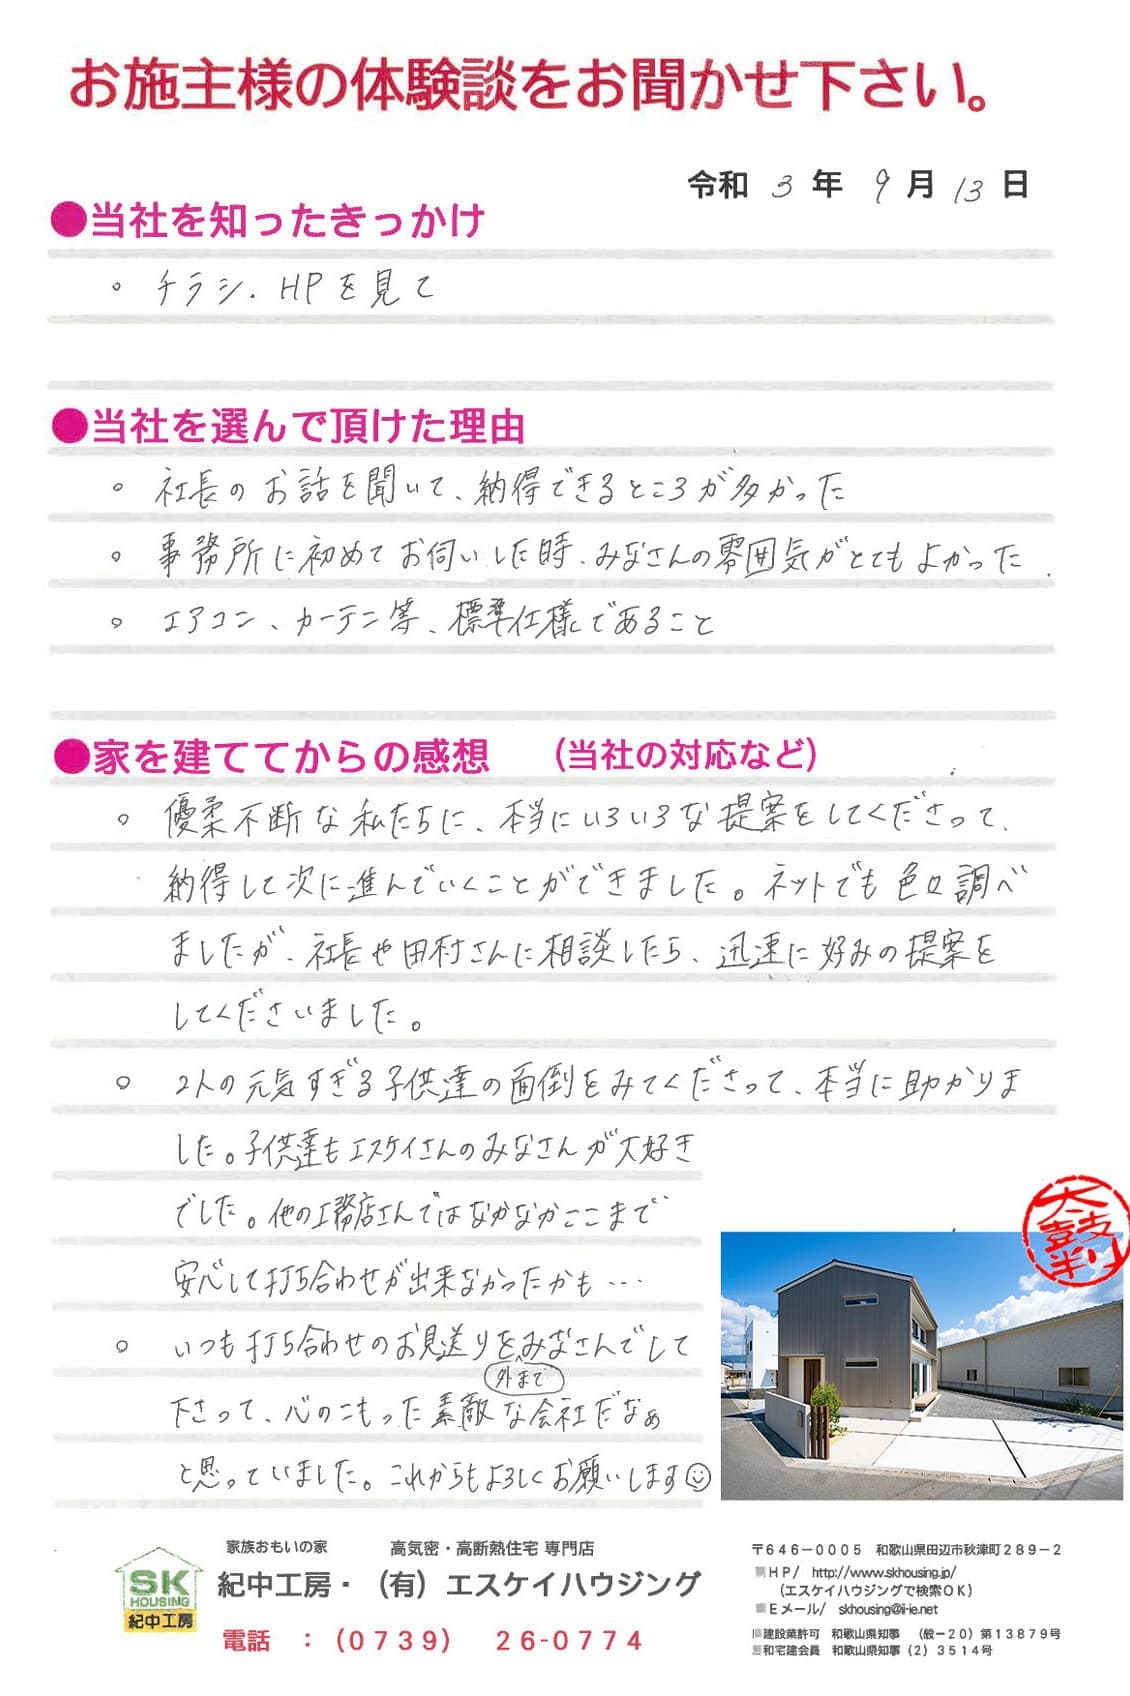 お施主様の体験談をお聞かせ下さい。
令和 3 年 9 月 13 日
●当社を知ったきっかけ
。チラシ、HPを見て
●当社を選んで頂けた理由
。社長のお話を聞いて、納得できるところが多かった
。事務所に初めてお伺いした時、みなさんの雰囲気がとてもよかった.
。エアコン、カーテン等、標準仕様であること
●家を建ててからの感想 （当社の対応など）
。優柔不断な私たちに、本当にいろいろな提案をしてくださって、
納得して次に進んでいくことができました。ネットでも色々調べ
ましたが、社長や田村さんに相談したら、迅速に好みの提案を
してくださいました。
。2人の元気すぎる子供達の面倒をみてくださって、本当に助かりま
した。子供達もエスケイさんのみなさんが大好き
でした。他の工務店さんではなかなかここまで
安心して打ち合わせが出来なかったかも…
。いつも打ち合わせのお見送りをみなさんでして
外まで
下さって、心のこもった素敵な会社だなぁ
と思っていました。これからもよろしくお願いします☺
太鼓判
SK
HOUSING
紀中工房
家族おもいの家 高気密・高断熱住宅 専門店
紀中工房・（有）エスケイハウジング
電話 ：（0739） 26-0774
〒646－0005 和歌山県田辺市秋津町289－2
■HP/ http://www.skhousing.jp/
（エスケイハウジングで検索OK）
■Eメール/ skhousing@i-ie.net
建設業許可 和歌山県知事 （般－20）第13879号
和宅建会員 和歌山県知事（2）3514号